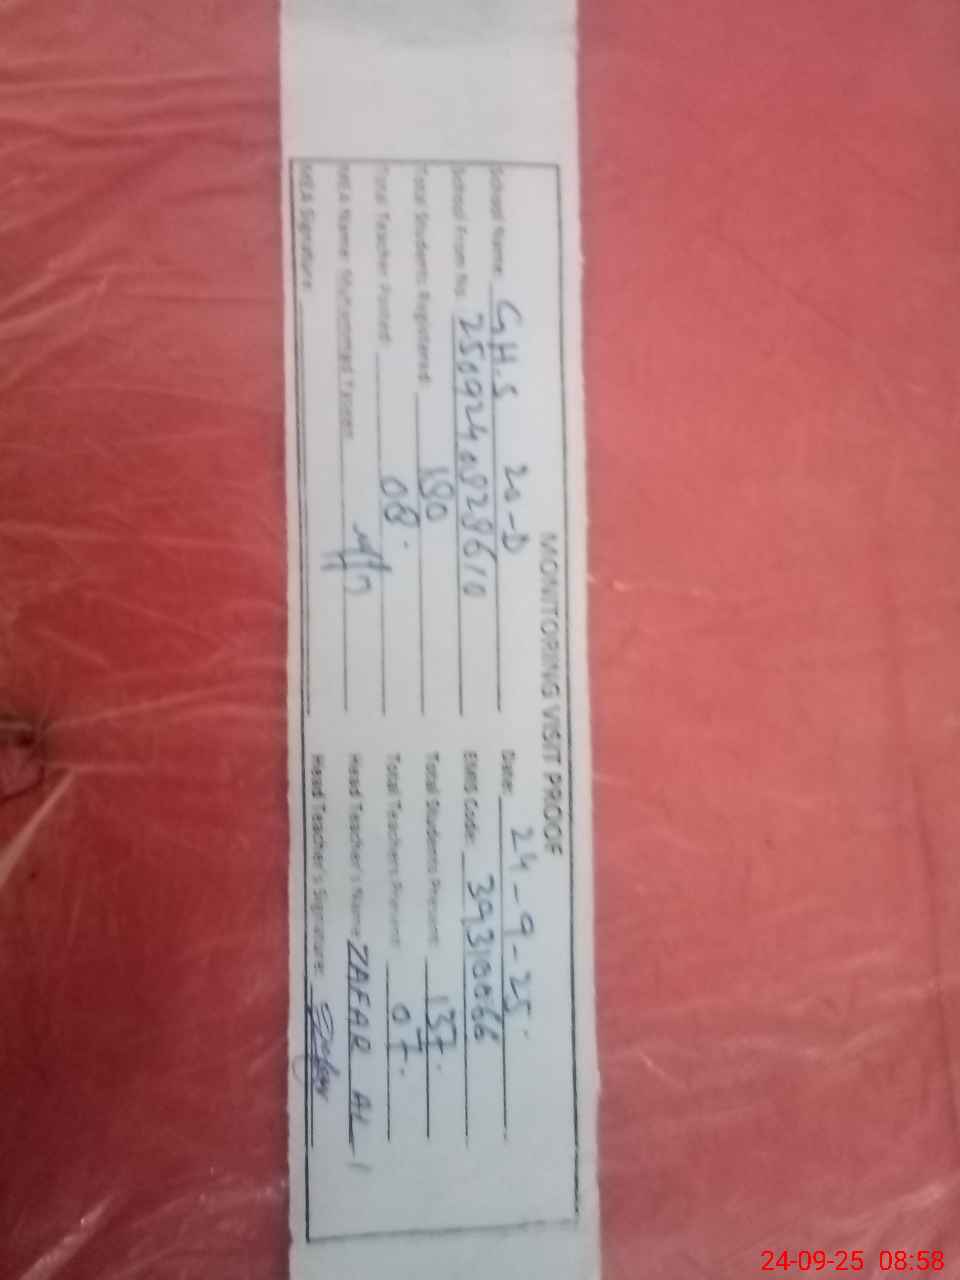 MONITORING VISIT PROOF
School Name: G.H.S 20-D Date: 24-9-25.
School From No: EMIS Code: 39310066
Total Students Registered: 190 Total Students Present: 137.
Total Teacher Posted: 08. Total Teachers Present: 07.
MEA Name: Muhammad Head Teacher's Name ZAFAR ALI
MEA Signature: Head Teacher's Signature:
24-09-25 08:58